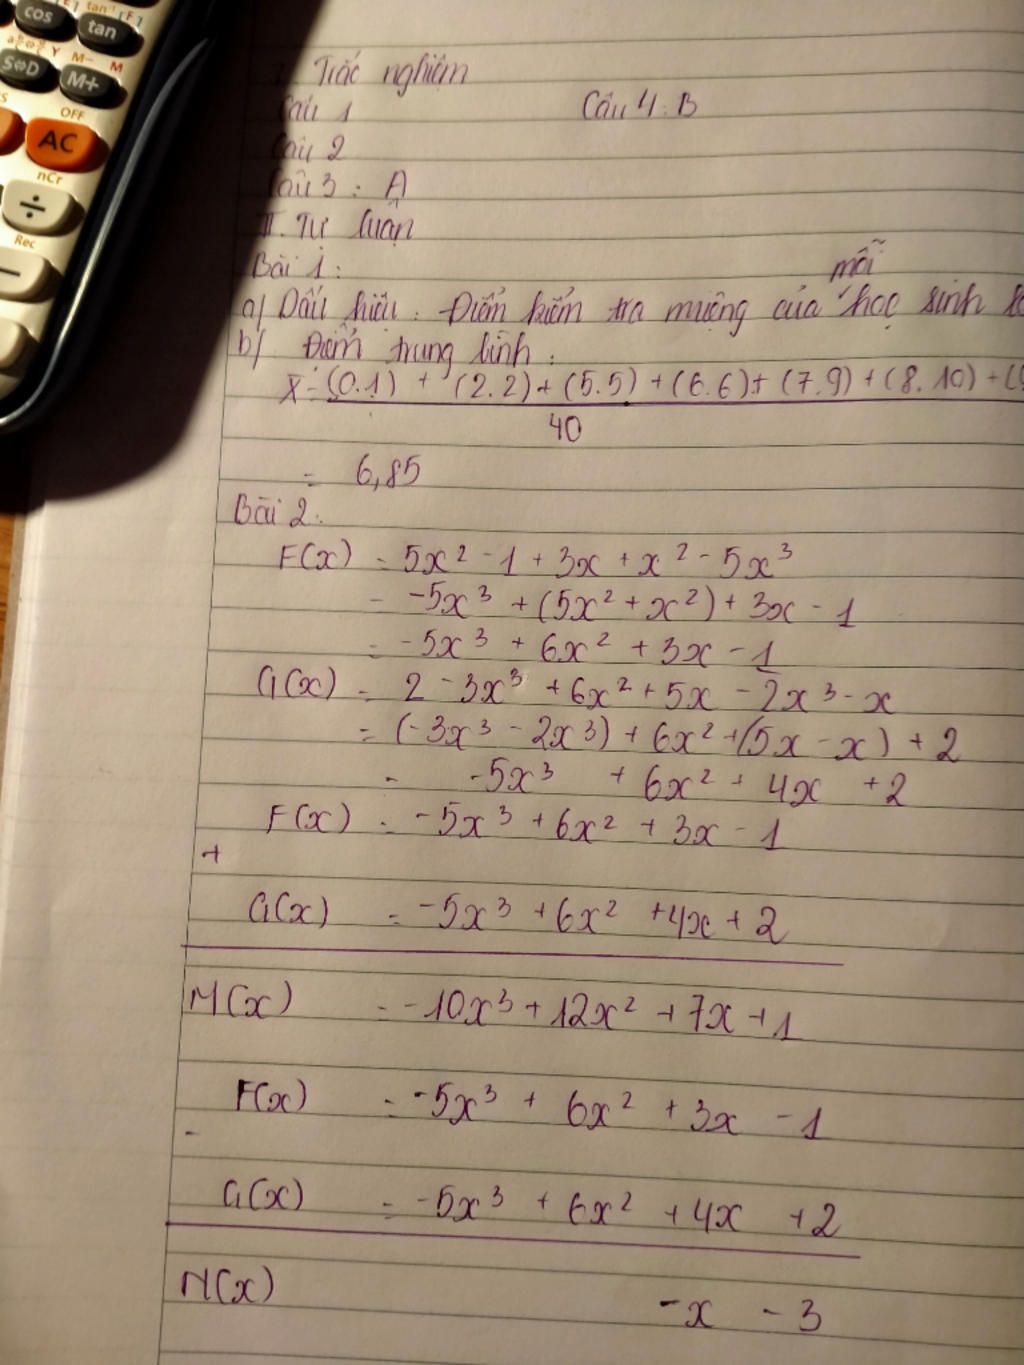 cos
tan⁻¹
tan
S⇔D
M−
M
M+
OFF
AC
nCr
÷
Rec
−
Trắc nghiệm
Câu 1
Câu 4: B
Câu 2
Câu 3 : A
II. Tự luận
Bài 1:
mỗi
a) Dấu hiệu : Điểm kiểm tra miệng của học sinh
b) Điểm trung bình :
X̄ = (0.1) + (2.2) + (5.5) + (6.6) + (7.9) + (8.10) +
40
= 6,85
Bài 2:
F(x) = 5x² - 1 + 3x + x² - 5x³
= -5x³ + (5x² + x²) + 3x - 1
= -5x³ + 6x² + 3x - 1
G(x) = 2 - 3x³ + 6x² + 5x - 2x³ - x
= (-3x³ - 2x³) + 6x² + (5x - x) + 2
= -5x³ + 6x² + 4x + 2
F(x) = -5x³ + 6x² + 3x - 1
+
G(x) = -5x³ + 6x² + 4x + 2
M(x) = -10x³ + 12x² + 7x + 1
F(x) = -5x³ + 6x² + 3x - 1
-
G(x) = -5x³ + 6x² + 4x + 2
N(x) -x - 3